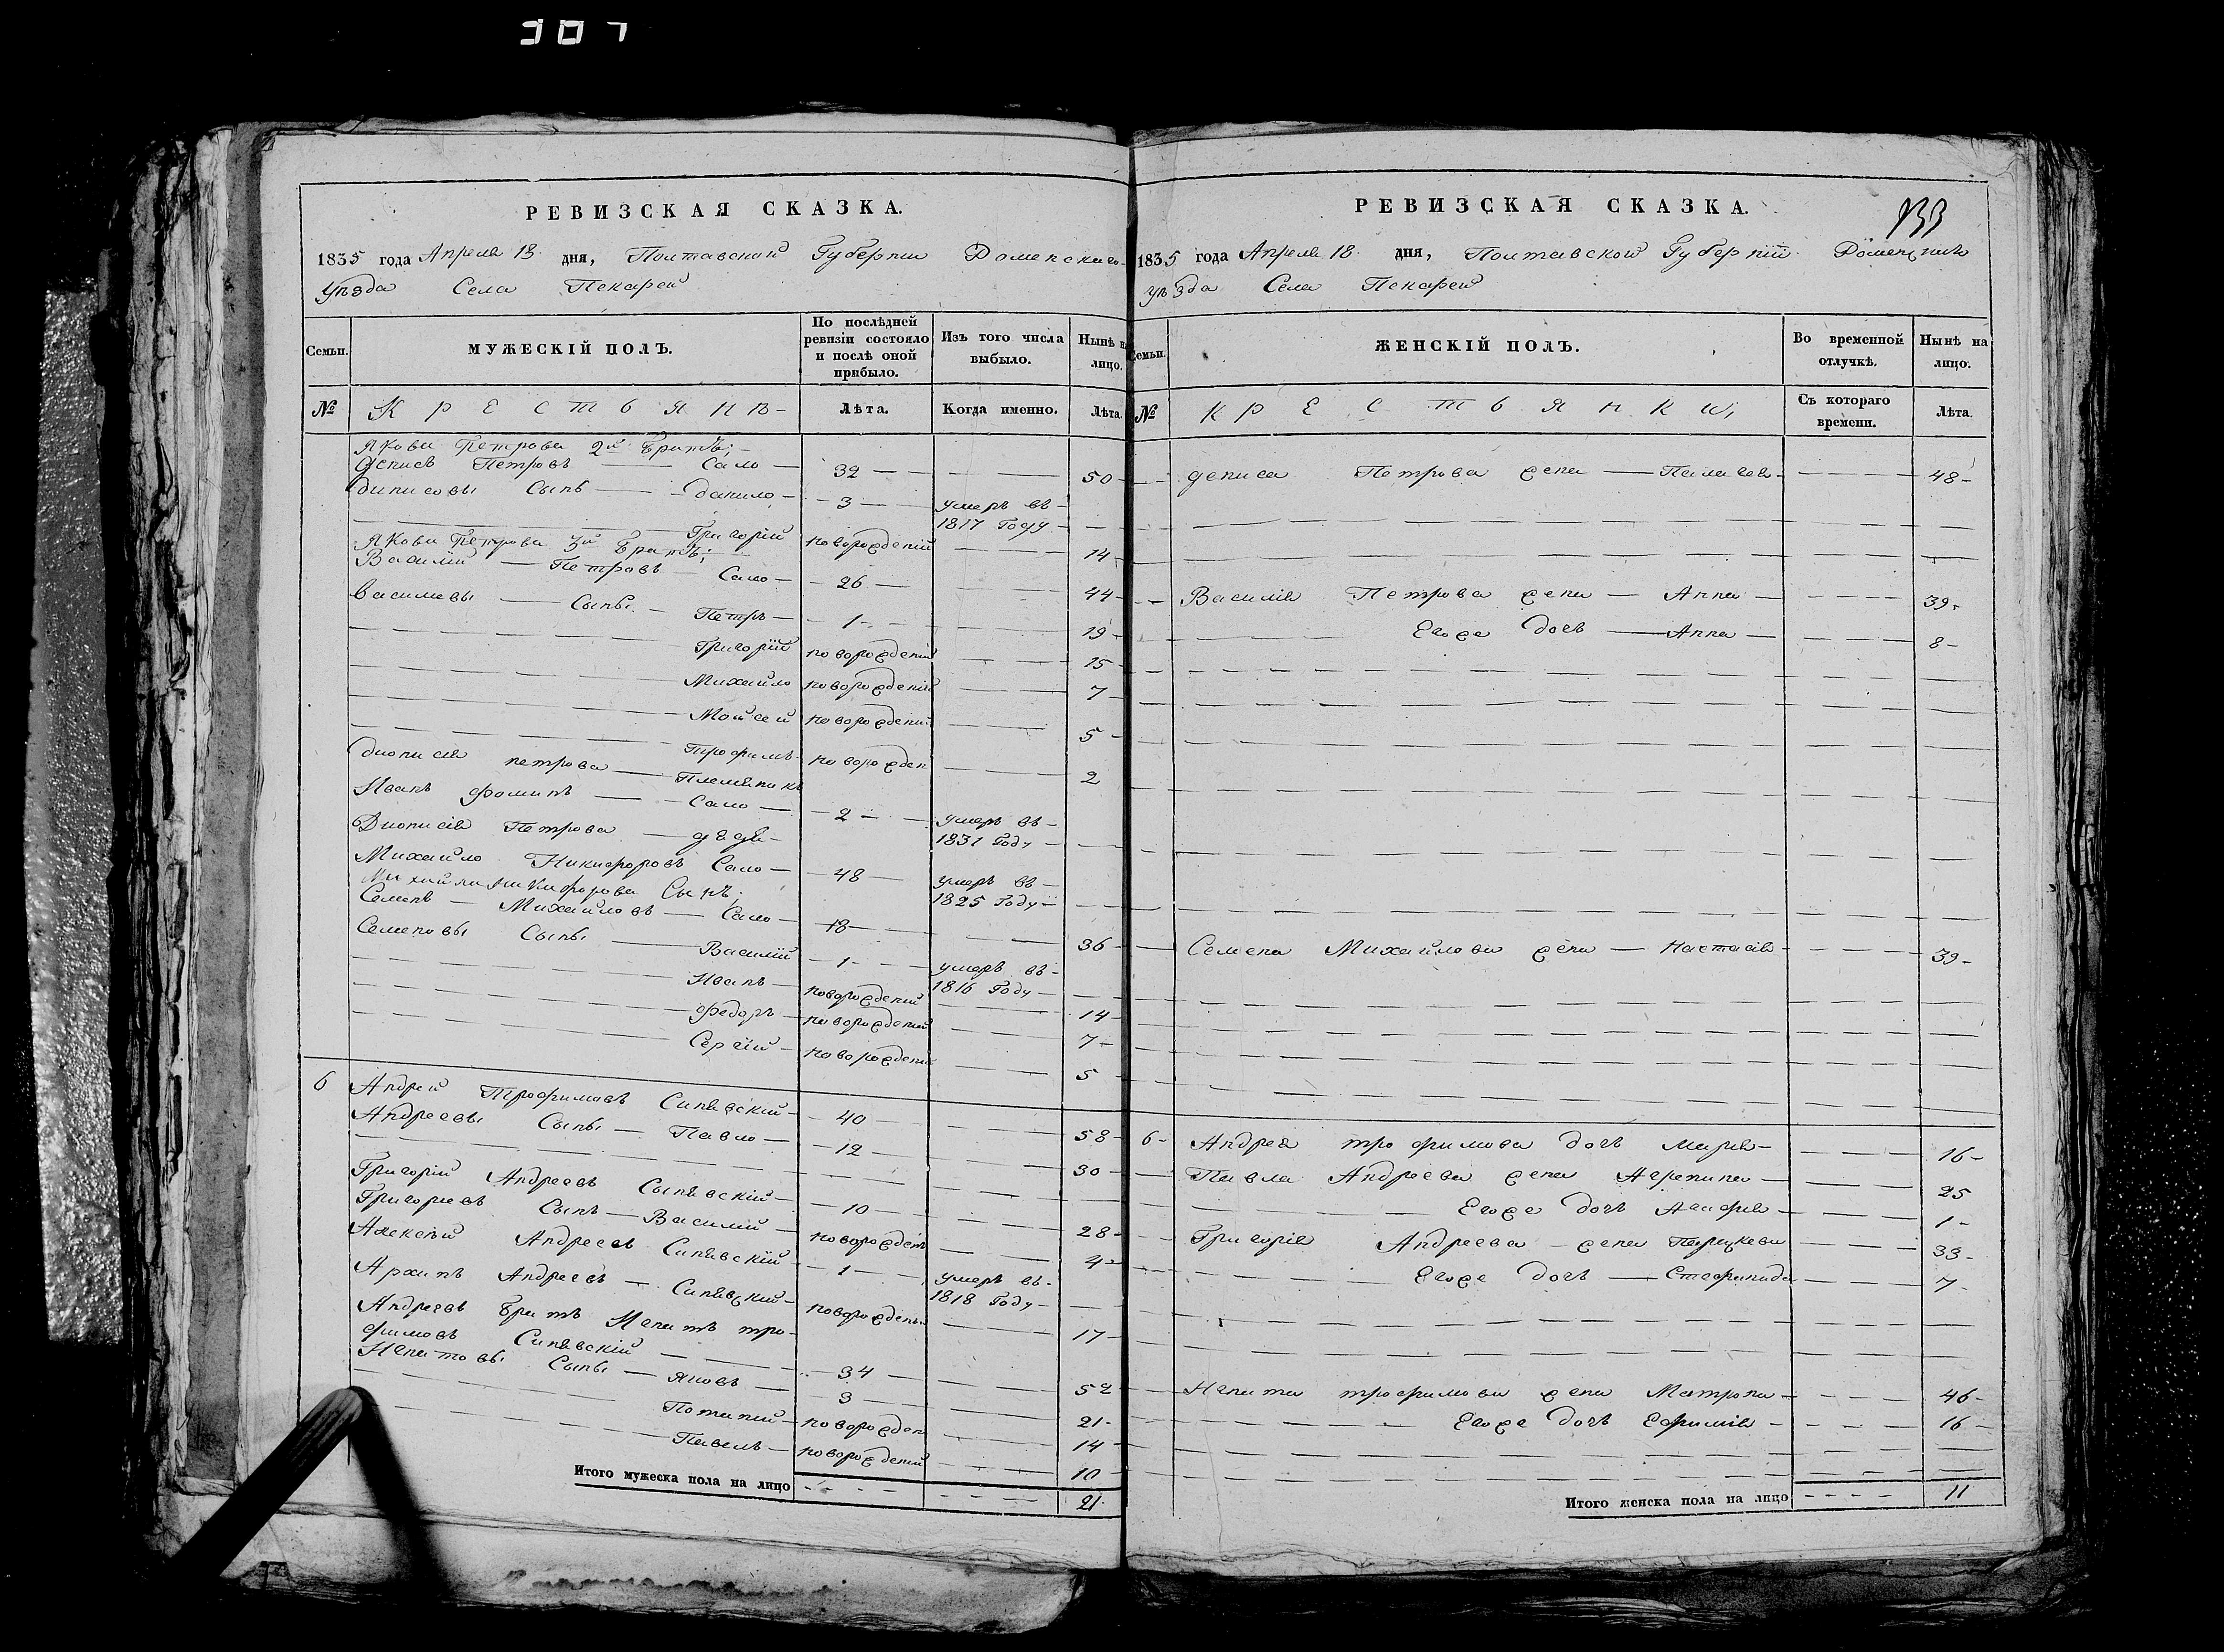 307
РЕВИЗСКАЯ СКАЗКА.
1835 года Апреля 18 дня, Полтавской Губернии Роменскаго
уѣзда Села Пекарей
Семьи.
МУЖЕСКІЙ ПОЛЪ.
По послѣдней ревизіи состояло и послѣ оной прибыло.
Изъ того числа выбыло.
Нынѣ на лицо.
№ Крестьянъ Лѣта. Когда именно. Лѣта.
Якова Петрова 2й братъ;
Денисъ Петровъ — Сало — 32 — — 50
Динисовы Сынъ — Данило — 3 — умеръ въ
1817 Году —
Григорій новорожденій — 14
Якова Петрова 3й братъ;
Василій — Петровъ — Сало — 26 — 44
Василевы — Сыны — Петръ — 1 — 19
Григорій новорожденій — 15
Михайло новорожденій — 7
Мойсей новорожденій — 5
Трофимъ новорожден — 2
Дионисія петрова — Племѣникъ
Иванъ Фоминъ — Сало — 2 — умеръ въ
1831 Году —
Дионисія Петрова — дядя
Михайло Никифоровъ Сало — 48 — умеръ въ
1825 Году —
Михайла Никифорова Сынъ;
Семенъ — Михайловъ — Сало — 18 — 36
Семеновы Сыны — Василій — 1 — умеръ въ
1816 Году —
Иванъ — новорожденій — 14
Федоръ — новорожденій — 7
Сергій — новорожденій — 5
6 Андрей Трофимовъ Синявскій — 40 — 58
Андреевы Сыны — Павло — 12 — 30
Григорій Андреевъ Сынявскій — 10 — 28
Григориевъ Сынъ — Василій — новорожденъ — 4
Алексѣй Андреевъ Синявскій — 1 — умеръ въ
1818 Году —
Архипъ Андреевъ — Синявскій — новорожденъ — 17
Андреевъ братъ Игнатъ тро-
фимовъ Синявскій — 34 — 52
Игнатовы Сыны — Яковъ — 3 — 21
Потапий — новорожден — 14
Павелъ — новорожденій — 10
Итого мужеска пола на лицо — 21
РЕВИЗСКАЯ СКАЗКА.
133
1835 года Апреля 18 дня, Полтавской Губерніи
уѣзда Села Пекарей
Семьи.
ЖЕНСКІЙ ПОЛЪ.
Во временной отлучкѣ.
Нынѣ на лицо.
№ Крестьянки, Съ котораго времени. Лѣта.
Дениса Петрова жена — Палагея — 48
Василія Петрова жена — Анна — 39
Егоже дочь — Анна — 8
Семена Михайлова жена — Настасія — 39
6 Андрея трофимова дочь Марія — 16
Павла Андреева жена Агрепина — 25
Егоже дочь — 1
Григорія Андреева жена — 33
Егоже дочь — Стефанида — 7
Игната трофимова жена Матрона — 46
Егоже дочь Ефимія — 16
Итого женска пола на лицо — 11